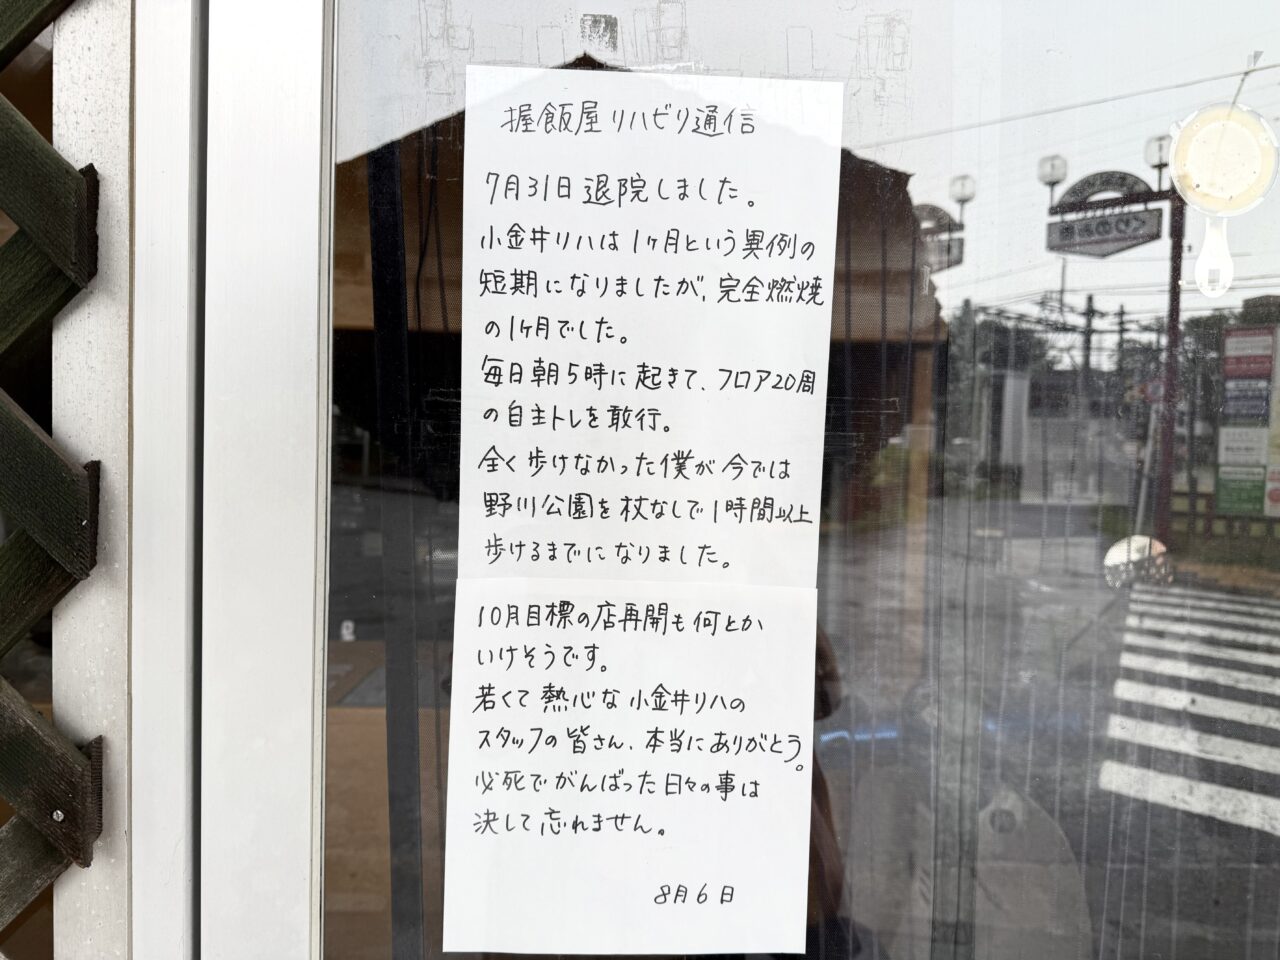 握飯屋リハビリ通信
7月31日退院しました。
小金井リハは1ヶ月という異例の
短期になりましたが、完全燃焼
の1ヶ月でした。
毎日朝5時に起きて、フロア20周
の自主トレを敢行。
全く歩けなかった僕が今では
野川公園を杖なしで1時間以上
歩けるまでになりました。
10月目標の店再開も何とか
いけそうです。
若くて熱心な小金井リハの
スタッフの皆さん、本当にありがとう。
必死でがんばった日々の事は
決して忘れません。
8月6日